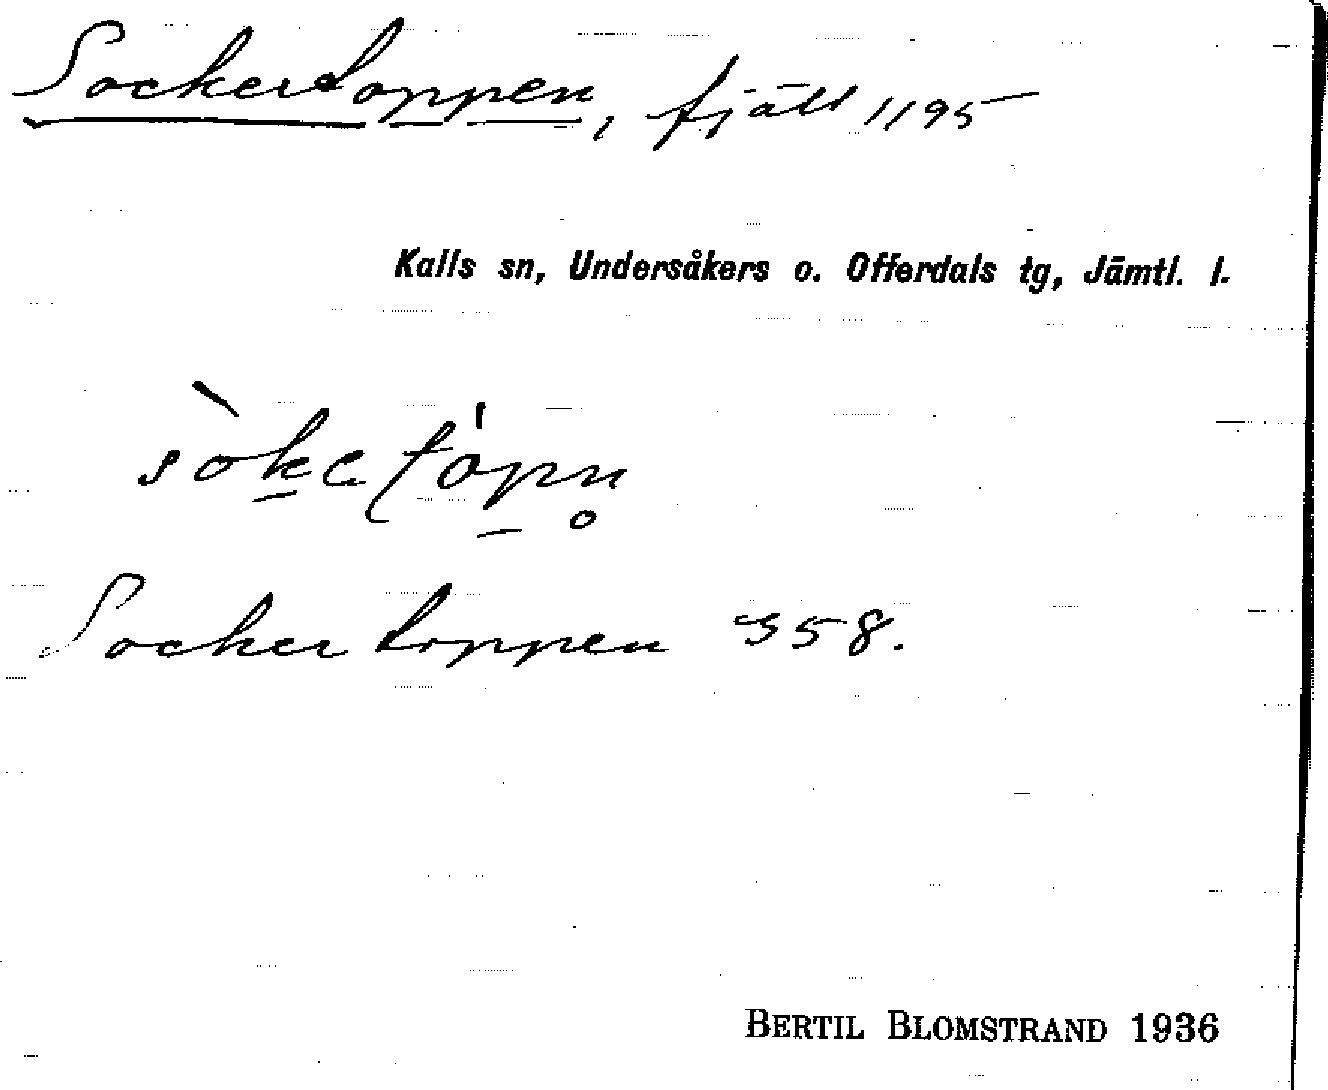 Sockertoppen, fjäll 1195
Kalls sn, Undersåkers o. Offerdals tg, Jämtl. l.
sòk̠etóp̠n̥
Sockertoppen 358.
BERTIL BLOMSTRAND 1936